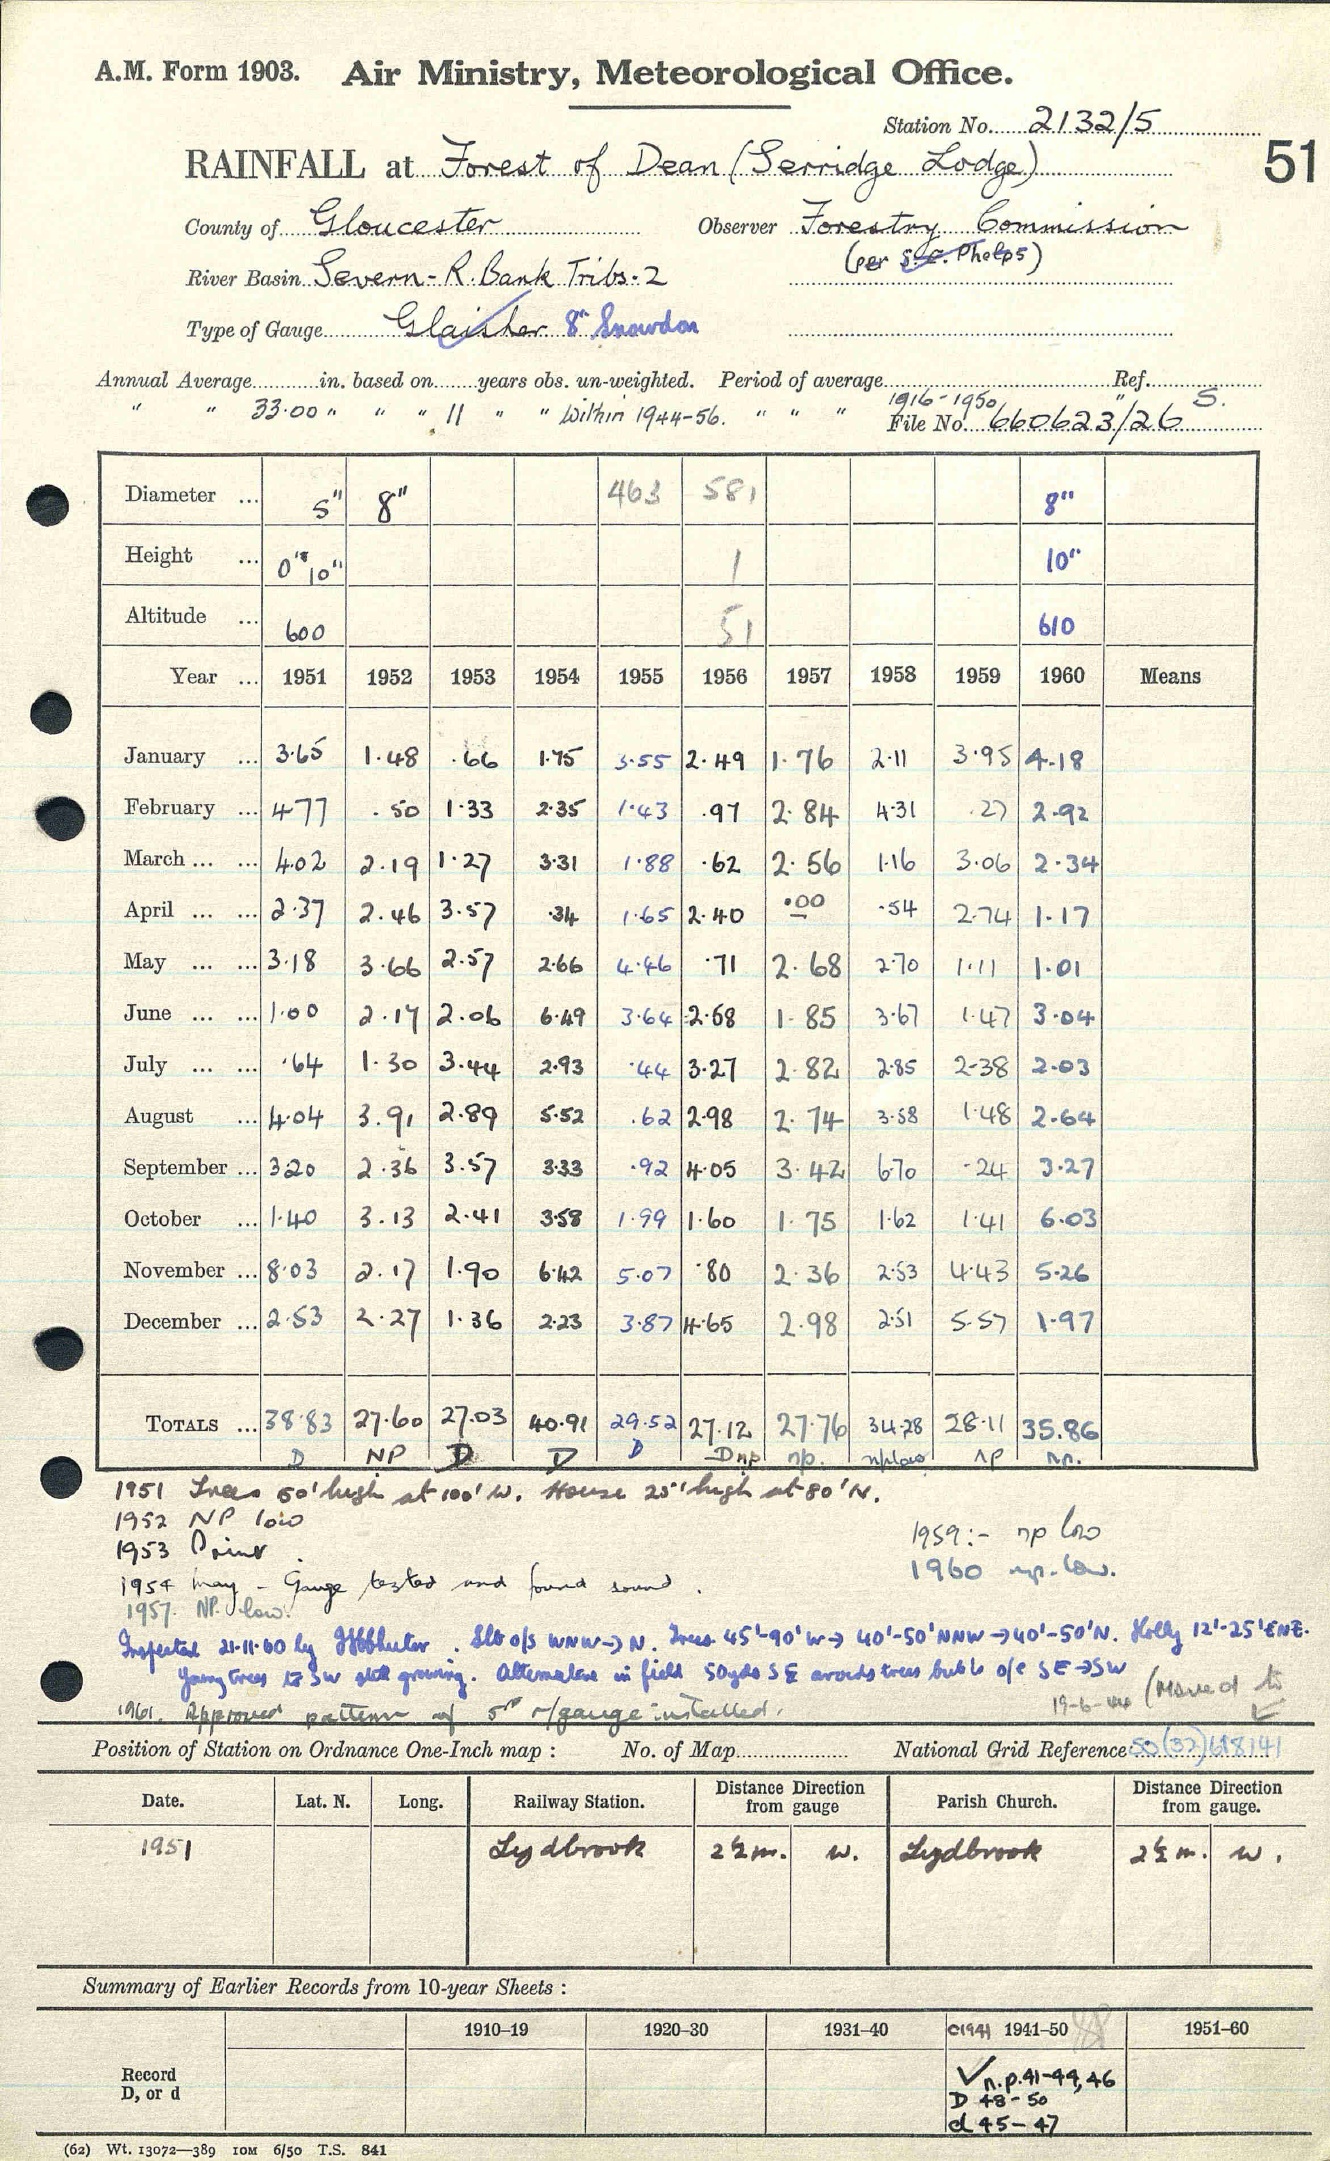 A.M. Form 1903. Air Ministry, Meteorological Office.
Station No. 2132/5
RAINFALL at Forest of Dean (Serridge Lodge)
51
County of Gloucester Observer Forestry Commission
(per S.C. Phelps)
River Basin Severn - R. Bank Tribs. 2
Type of Gauge Glaisher 8" Snowdon
Annual Average in. based on years obs. un-weighted. Period of average Ref.
" " 33.00 " " " 11 " " Within 1944-56. " " " 1916-1950 " S.
File No. 660623/26
Diameter ... 5" 8" 463 581 8"
Height ... 0' 10" 1 10"
Altitude ... 600 51 610
Year ... 1951 1952 1953 1954 1955 1956 1957 1958 1959 1960 Means
January ... 3.65 1.48 .66 1.75 3.55 2.49 1.76 2.11 3.95 4.18
February ... 4.77 .50 1.33 2.35 1.43 .97 2.84 4.31 .27 2.92
March ... ... 4.02 2.19 1.27 3.31 1.88 .62 2.56 1.16 3.06 2.34
April ... ... 2.37 2.46 3.57 .34 1.65 2.40 .00 .54 2.74 1.17
May ... ... 3.18 3.66 2.57 2.66 4.46 .71 2.68 2.70 1.11 1.01
June ... ... 1.00 2.17 2.06 6.49 3.64 2.58 1.85 3.67 1.47 3.04
July ... ... .64 1.30 3.44 2.93 .44 3.27 2.82 2.85 2.38 2.03
August ... 4.04 3.91 2.89 5.52 .62 2.98 2.74 3.58 1.48 2.64
September ... 3.20 2.36 3.57 3.33 .92 4.05 3.42 6.70 .24 3.27
October ... 1.40 3.13 2.41 3.58 1.99 1.60 1.75 1.62 1.41 6.03
November ... 8.03 2.17 1.90 6.42 5.07 .80 2.36 2.53 4.43 5.26
December ... 2.53 2.27 1.36 2.23 3.87 4.65 2.98 2.51 5.57 1.97
TOTALS ... 38.83 27.60 27.03 40.91 29.52 27.12 27.76 34.28 28.11 35.86
D NP D D D D np np. np low np np.
1951 Trees 50' high at 100' W. House 25' high at 80' N.
1952 NP low
1953 Prinr.
1959:- np low
1960 np. low.
1954 May - Gauge tested and found sound.
1957. NP. low.
Inspected 21-11-60 by . Slt o/s WNW→N. Trees 45'-90' W→ 40'-50' NNW→40'-50' N. Holly 12'-25' ENE.
Young trees to SW still growing. Alternative in field 50yds SE avoids trees but b o/e SE→SW
1961. Approved pattern of 5" r/gauge installed.
19-6-44 (moved to
Position of Station on Ordnance One-Inch map : No. of Map National Grid Reference 50(32)618141
Date. Lat. N. Long. Railway Station. Distance from gauge Direction Parish Church. Distance Direction from gauge.
1951 Lydbrook 2½m. W. Lydbrook 2½m. W.
Summary of Earlier Records from 10-year Sheets :
1910–19 1920–30 1931–40 C1941 1941–50 1951–60
Record D, or d
✓ n.p. 41-44, 46
D 48-50
d 45-47
(62) Wt. 13072—389 10M 6/50 T.S. 841